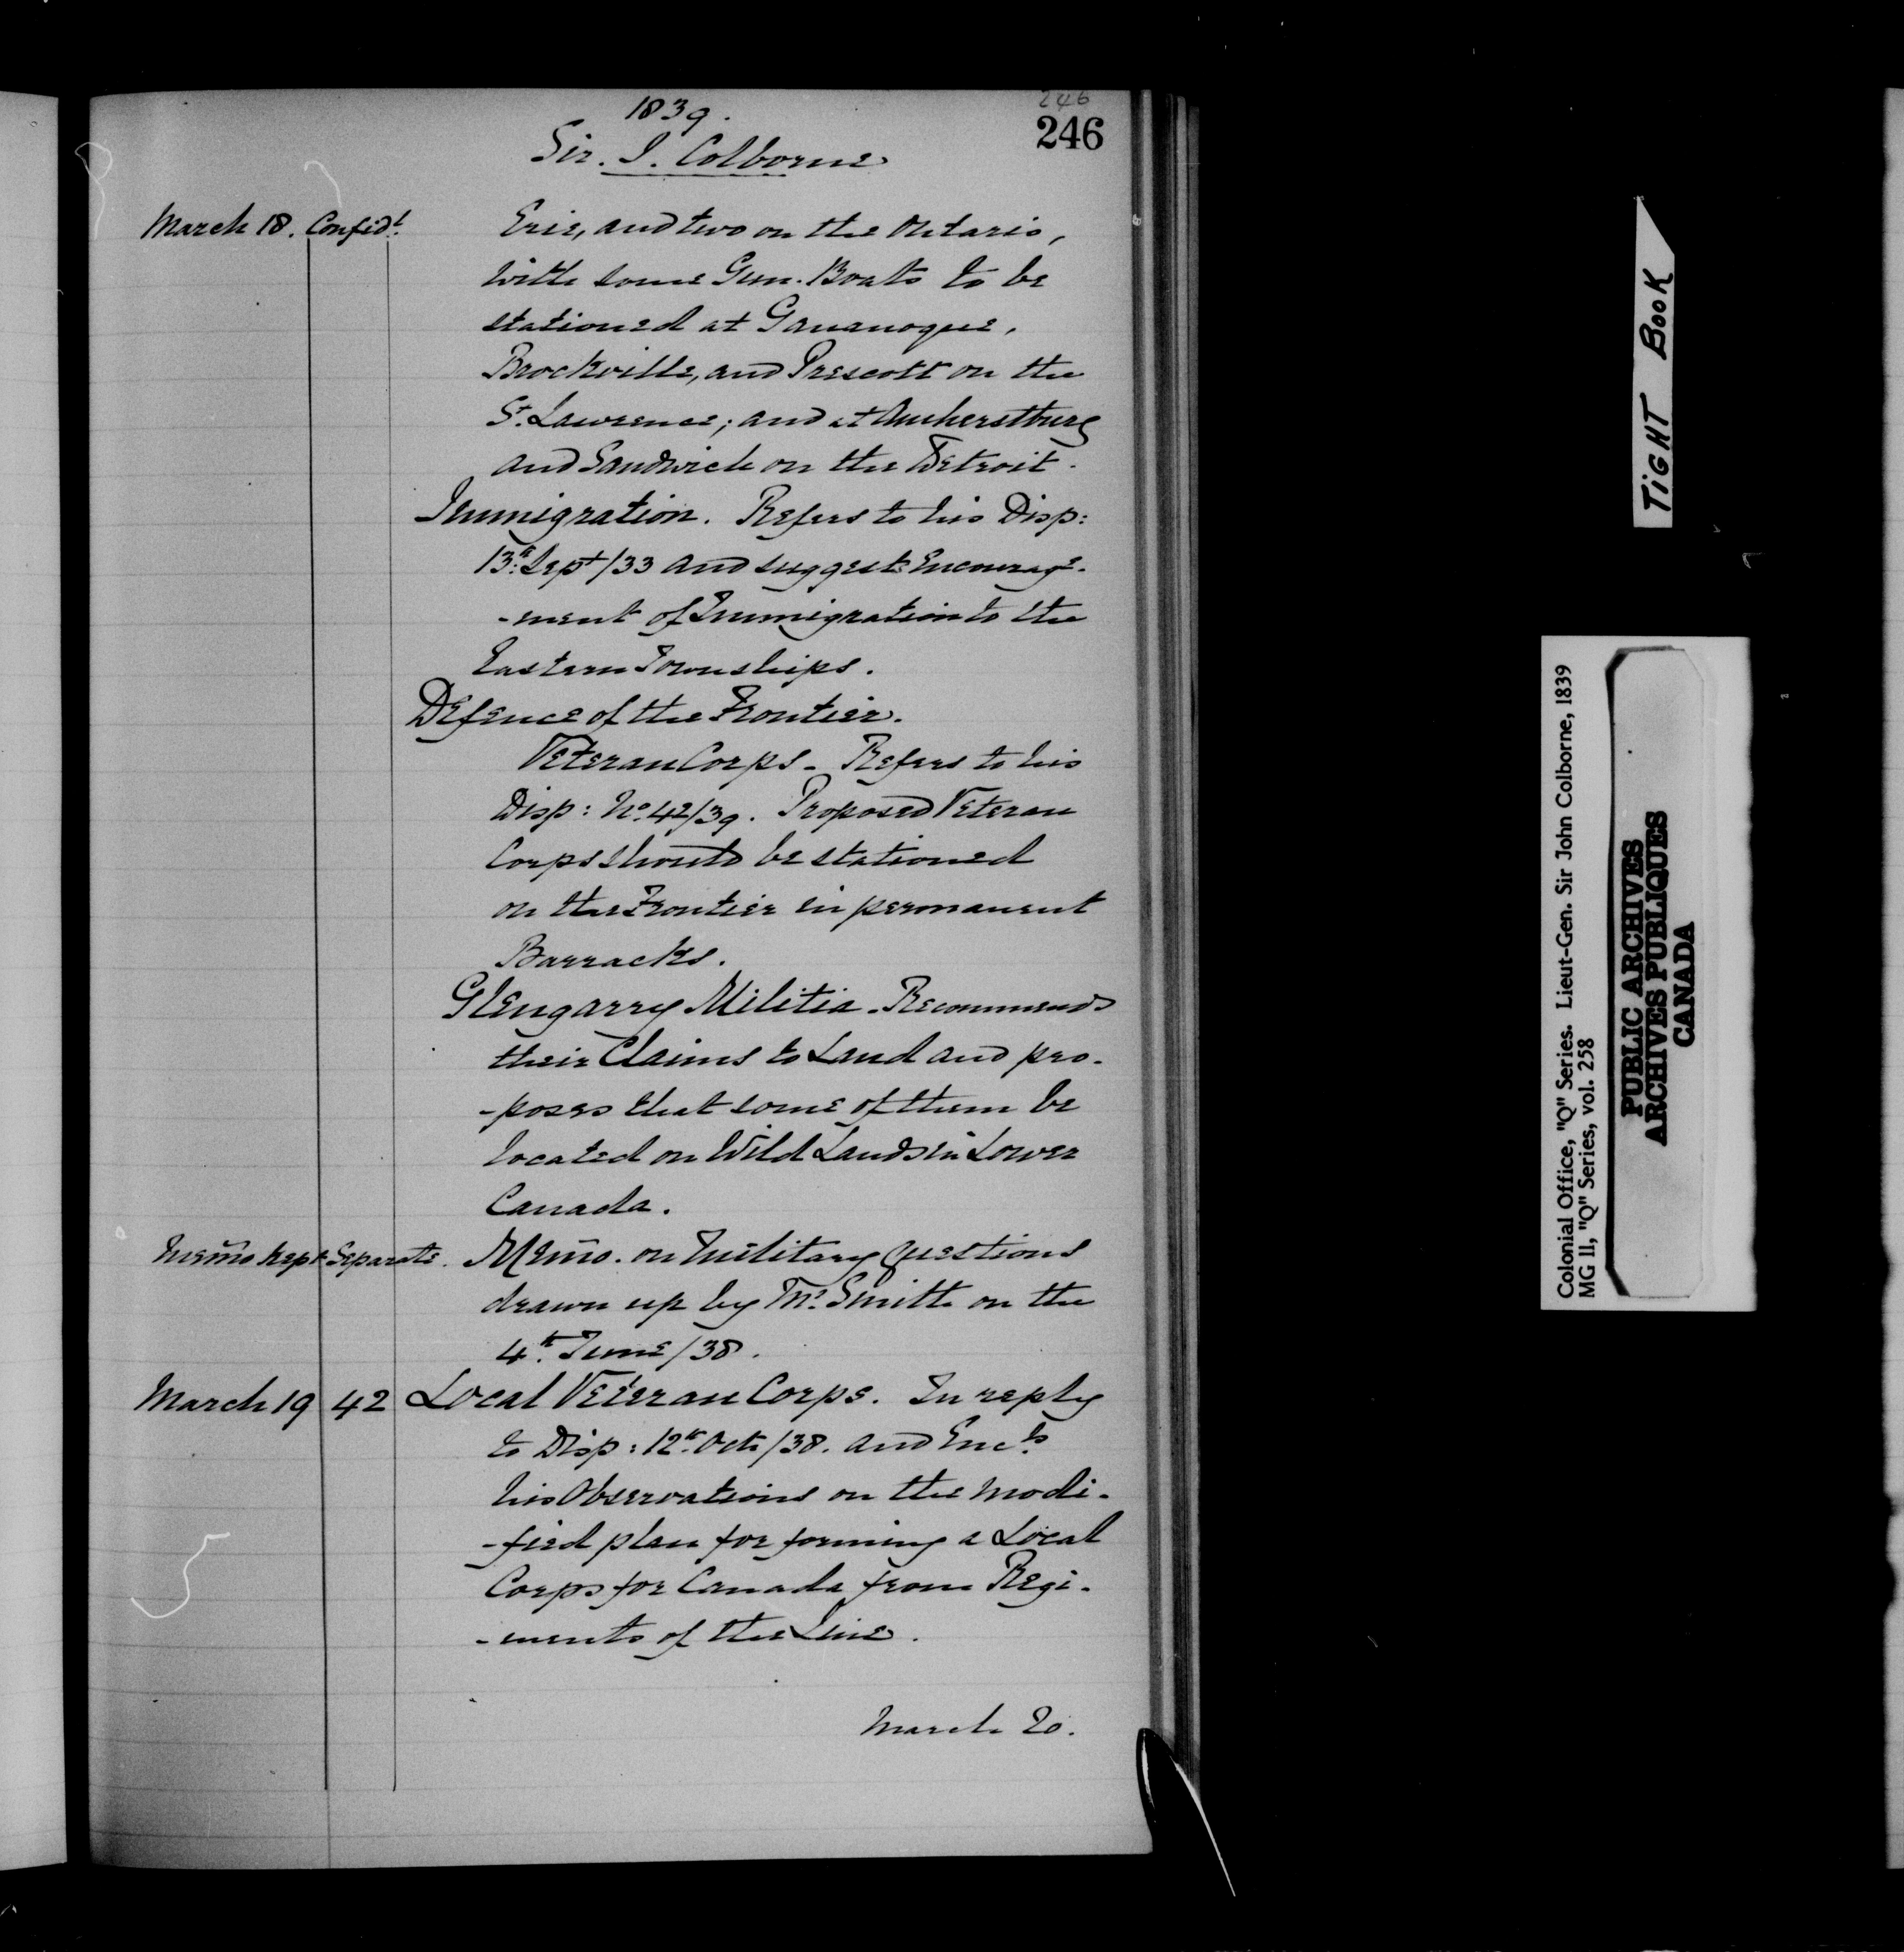 246
1839.
246
Sir. J. Colborne
March 18. Confidt. Erie, and two on the Ontario,
with some Gun. Boats to be
stationed at Gananoque,
Brockville, and Prescott on the
St. Lawrence; and at Amherstburg
and Sandwich on the Detroit.
Immigration. Refers to his Disp:
13th Sept/33 and suggests Encourage-
-ment of Immigration to the
Eastern Townships.
Defence of the Frontier.
Veteran Corps - Refers to his
Disp: No. 42/39. Proposed Veteran
Corps should be stationed
on the Frontier in permanent
Barracks.
Glengarry Militia. Recommends
their Claims to Land and pro-
-poses that some of them be
located on Wild Lands in Lower
Canada.
Memo kept Separate. Memo. on Military Questions
drawn up by Mr. Smith on the
4th June/38.
March 19 42 Local Veteran Corps. In reply
to Disp: 12th Oct/38. and Encls
his Observations on the modi-
-fied plan for forming a Local
Corps for Canada from Regi-
-ments of the Line.
March 20.
TIGHT BOOK
Colonial Office, "Q" Series. Lieut-Gen. Sir John Colborne, 1839
MG 11, "Q" Series, vol. 258
PUBLIC ARCHIVES
ARCHIVES PUBLIQUES
CANADA